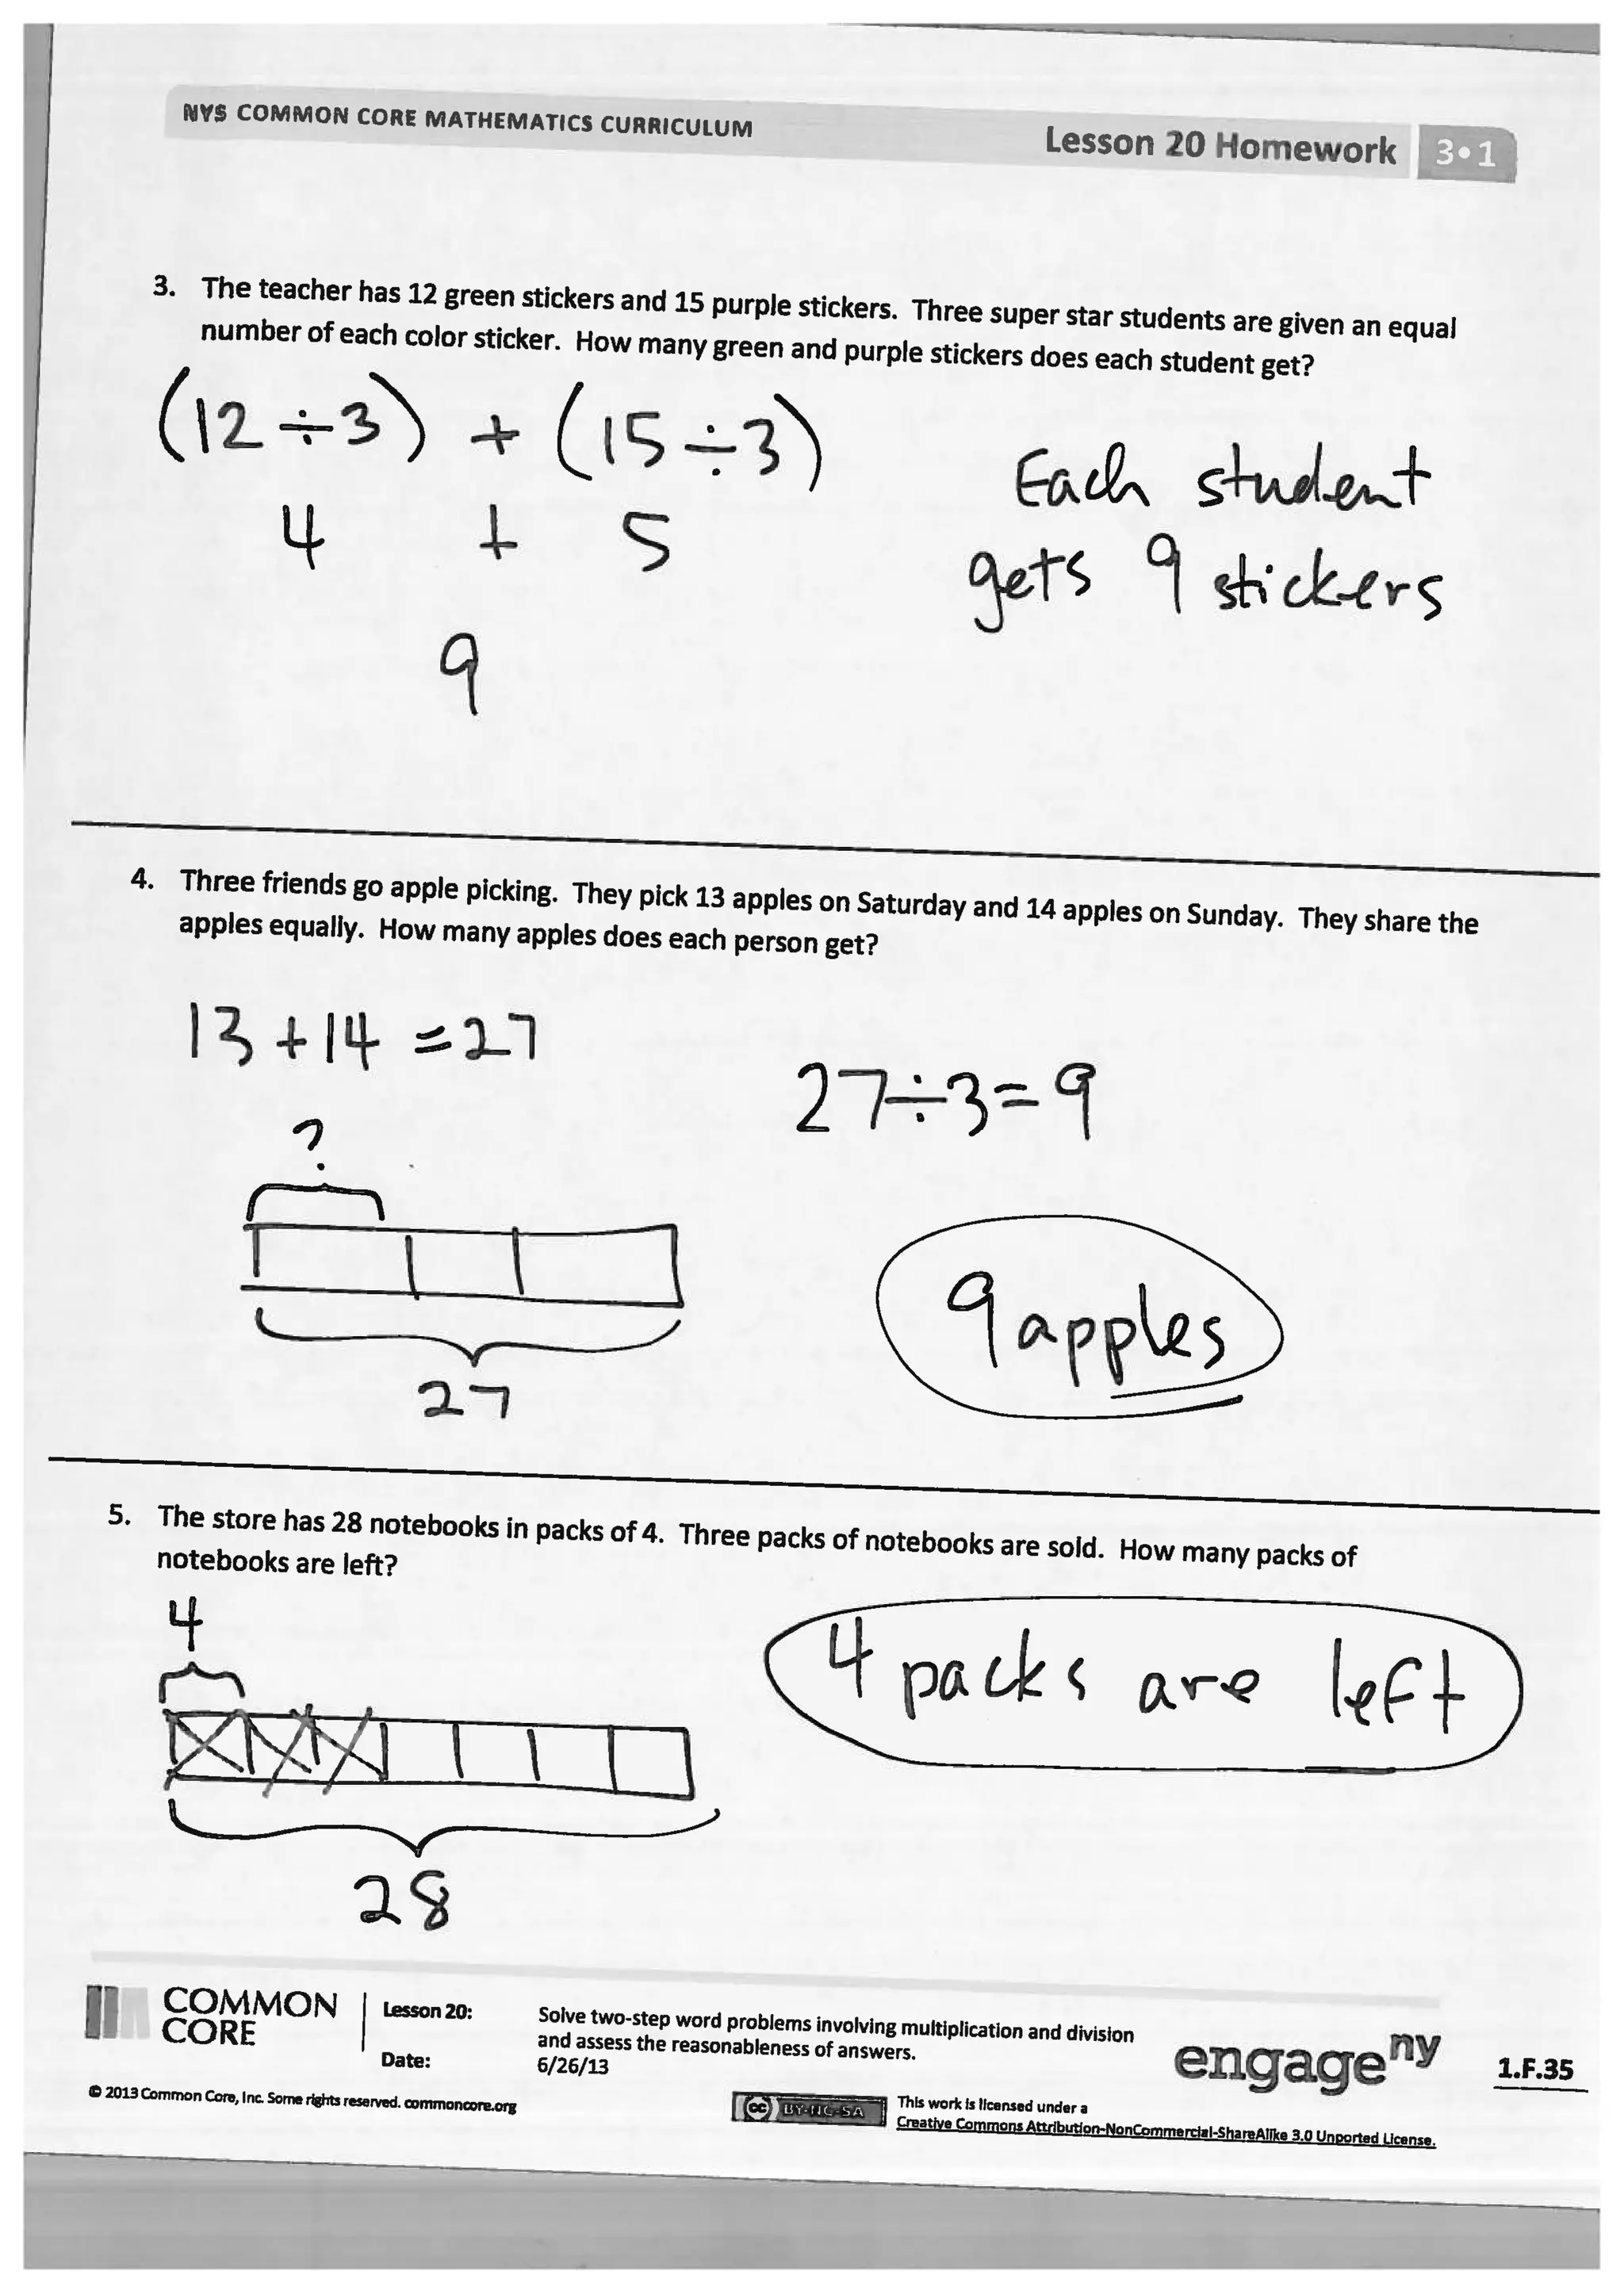 NYS COMMON CORE MATHEMATICS CURRICULUM
Lesson 20 Homework 3•1
3. The teacher has 12 green stickers and 15 purple stickers. Three super star students are given an equal
number of each color sticker. How many green and purple stickers does each student get?
(12÷3) + (15÷3)
4 + 5
9
Each student
gets 9 stickers
4. Three friends go apple picking. They pick 13 apples on Saturday and 14 apples on Sunday. They share the
apples equally. How many apples does each person get?
13+14=27
27÷3=9
?
27
9 apples
5. The store has 28 notebooks in packs of 4. Three packs of notebooks are sold. How many packs of
notebooks are left?
4
28
4 packs are left
COMMON
CORE
Lesson 20:
Solve two-step word problems involving multiplication and division
and assess the reasonableness of answers.
Date:
6/26/13
engageny
1.F.35
© 2013 Common Core, Inc. Some rights reserved. commoncore.org
cc BY-NC-SA
This work is licensed under a
Creative Commons Attribution-NonCommercial-ShareAlike 3.0 Unported License.